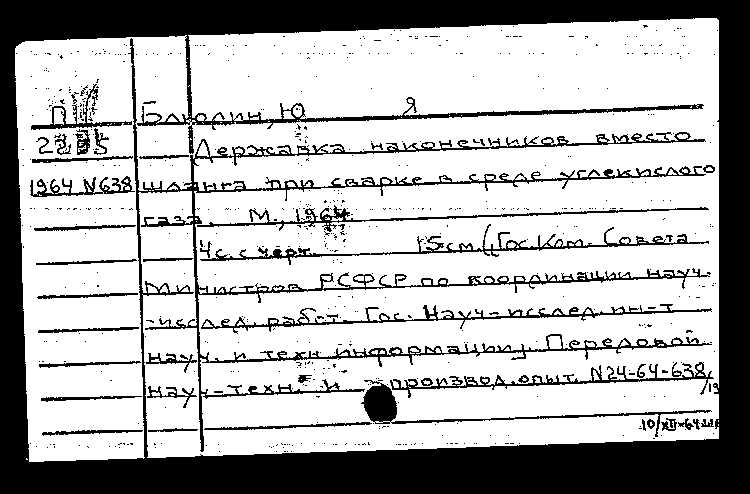 П Блюдин, Ю Я
Державка наконечников вместо
1964 N638 шланга при сварке в среде углекислого
газа. М., 1964
4с. с черт. 15см. (Гос. Ком. Совета
Министров РСФСР по координации науч.
-исслед. работ. Гос. Науч-исслед. ин-т
науч. и техн информации, Передовой
науч-техн. и производ. опыт. N24-64-638/
/19
10/XII-64